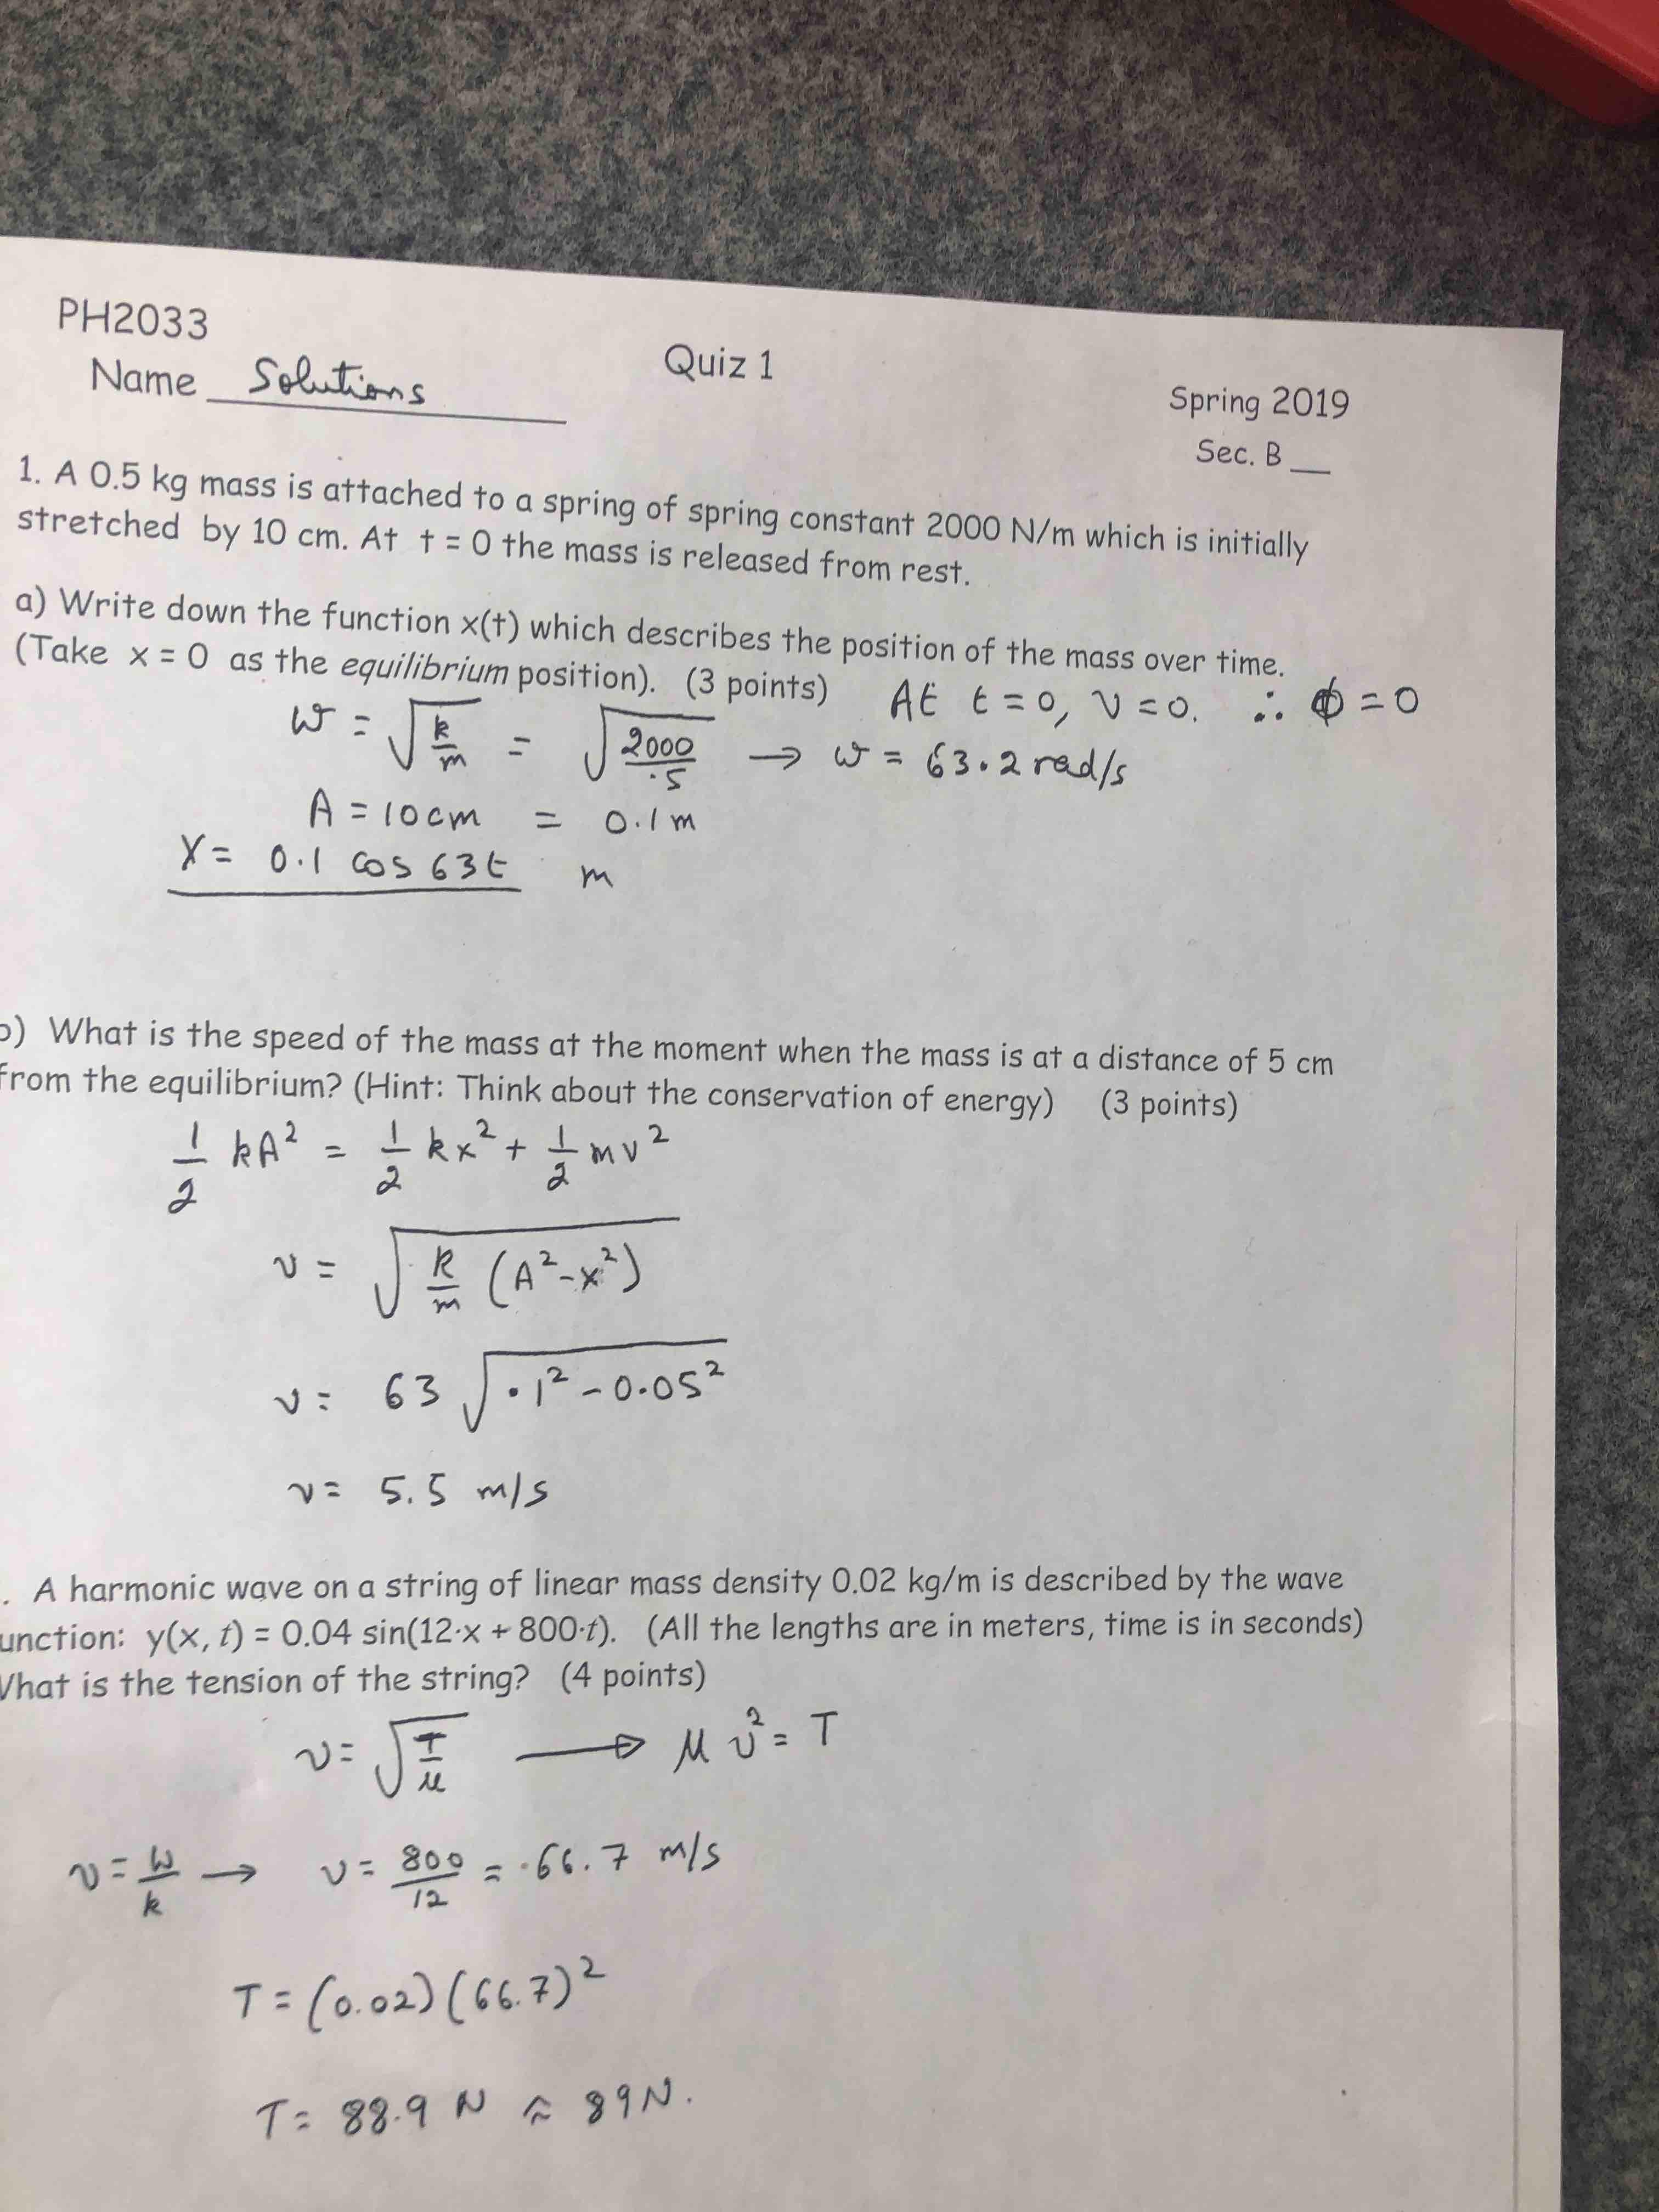 PH2033
Quiz 1
Spring 2019
Name Solutions
Sec. B __
1. A 0.5 kg mass is attached to a spring of spring constant 2000 N/m which is initially
stretched by 10 cm. At t = 0 the mass is released from rest.
a) Write down the function x(t) which describes the position of the mass over time.
(Take x = 0 as the equilibrium position). (3 points)
At t = 0, v = 0. ∴ ϕ = 0
ω = √(k/m) = √(2000/.5) → ω = 63.2 rad/s
A = 10 cm = 0.1 m
X = 0.1 cos 63t m
b) What is the speed of the mass at the moment when the mass is at a distance of 5 cm
from the equilibrium? (Hint: Think about the conservation of energy) (3 points)
1/2 kA² = 1/2 kx² + 1/2 mv²
v = √(k/m (A² - x²))
v = 63 √(.1² - 0.05²)
v = 5.5 m/s
. A harmonic wave on a string of linear mass density 0.02 kg/m is described by the wave
unction: y(x, t) = 0.04 sin(12·x + 800·t). (All the lengths are in meters, time is in seconds)
What is the tension of the string? (4 points)
v = √(T/μ) → μ v² = T
v = ω/k → v = 800/12 = 66.7 m/s
T = (0.02)(66.7)²
T = 88.9 N ≈ 89 N.